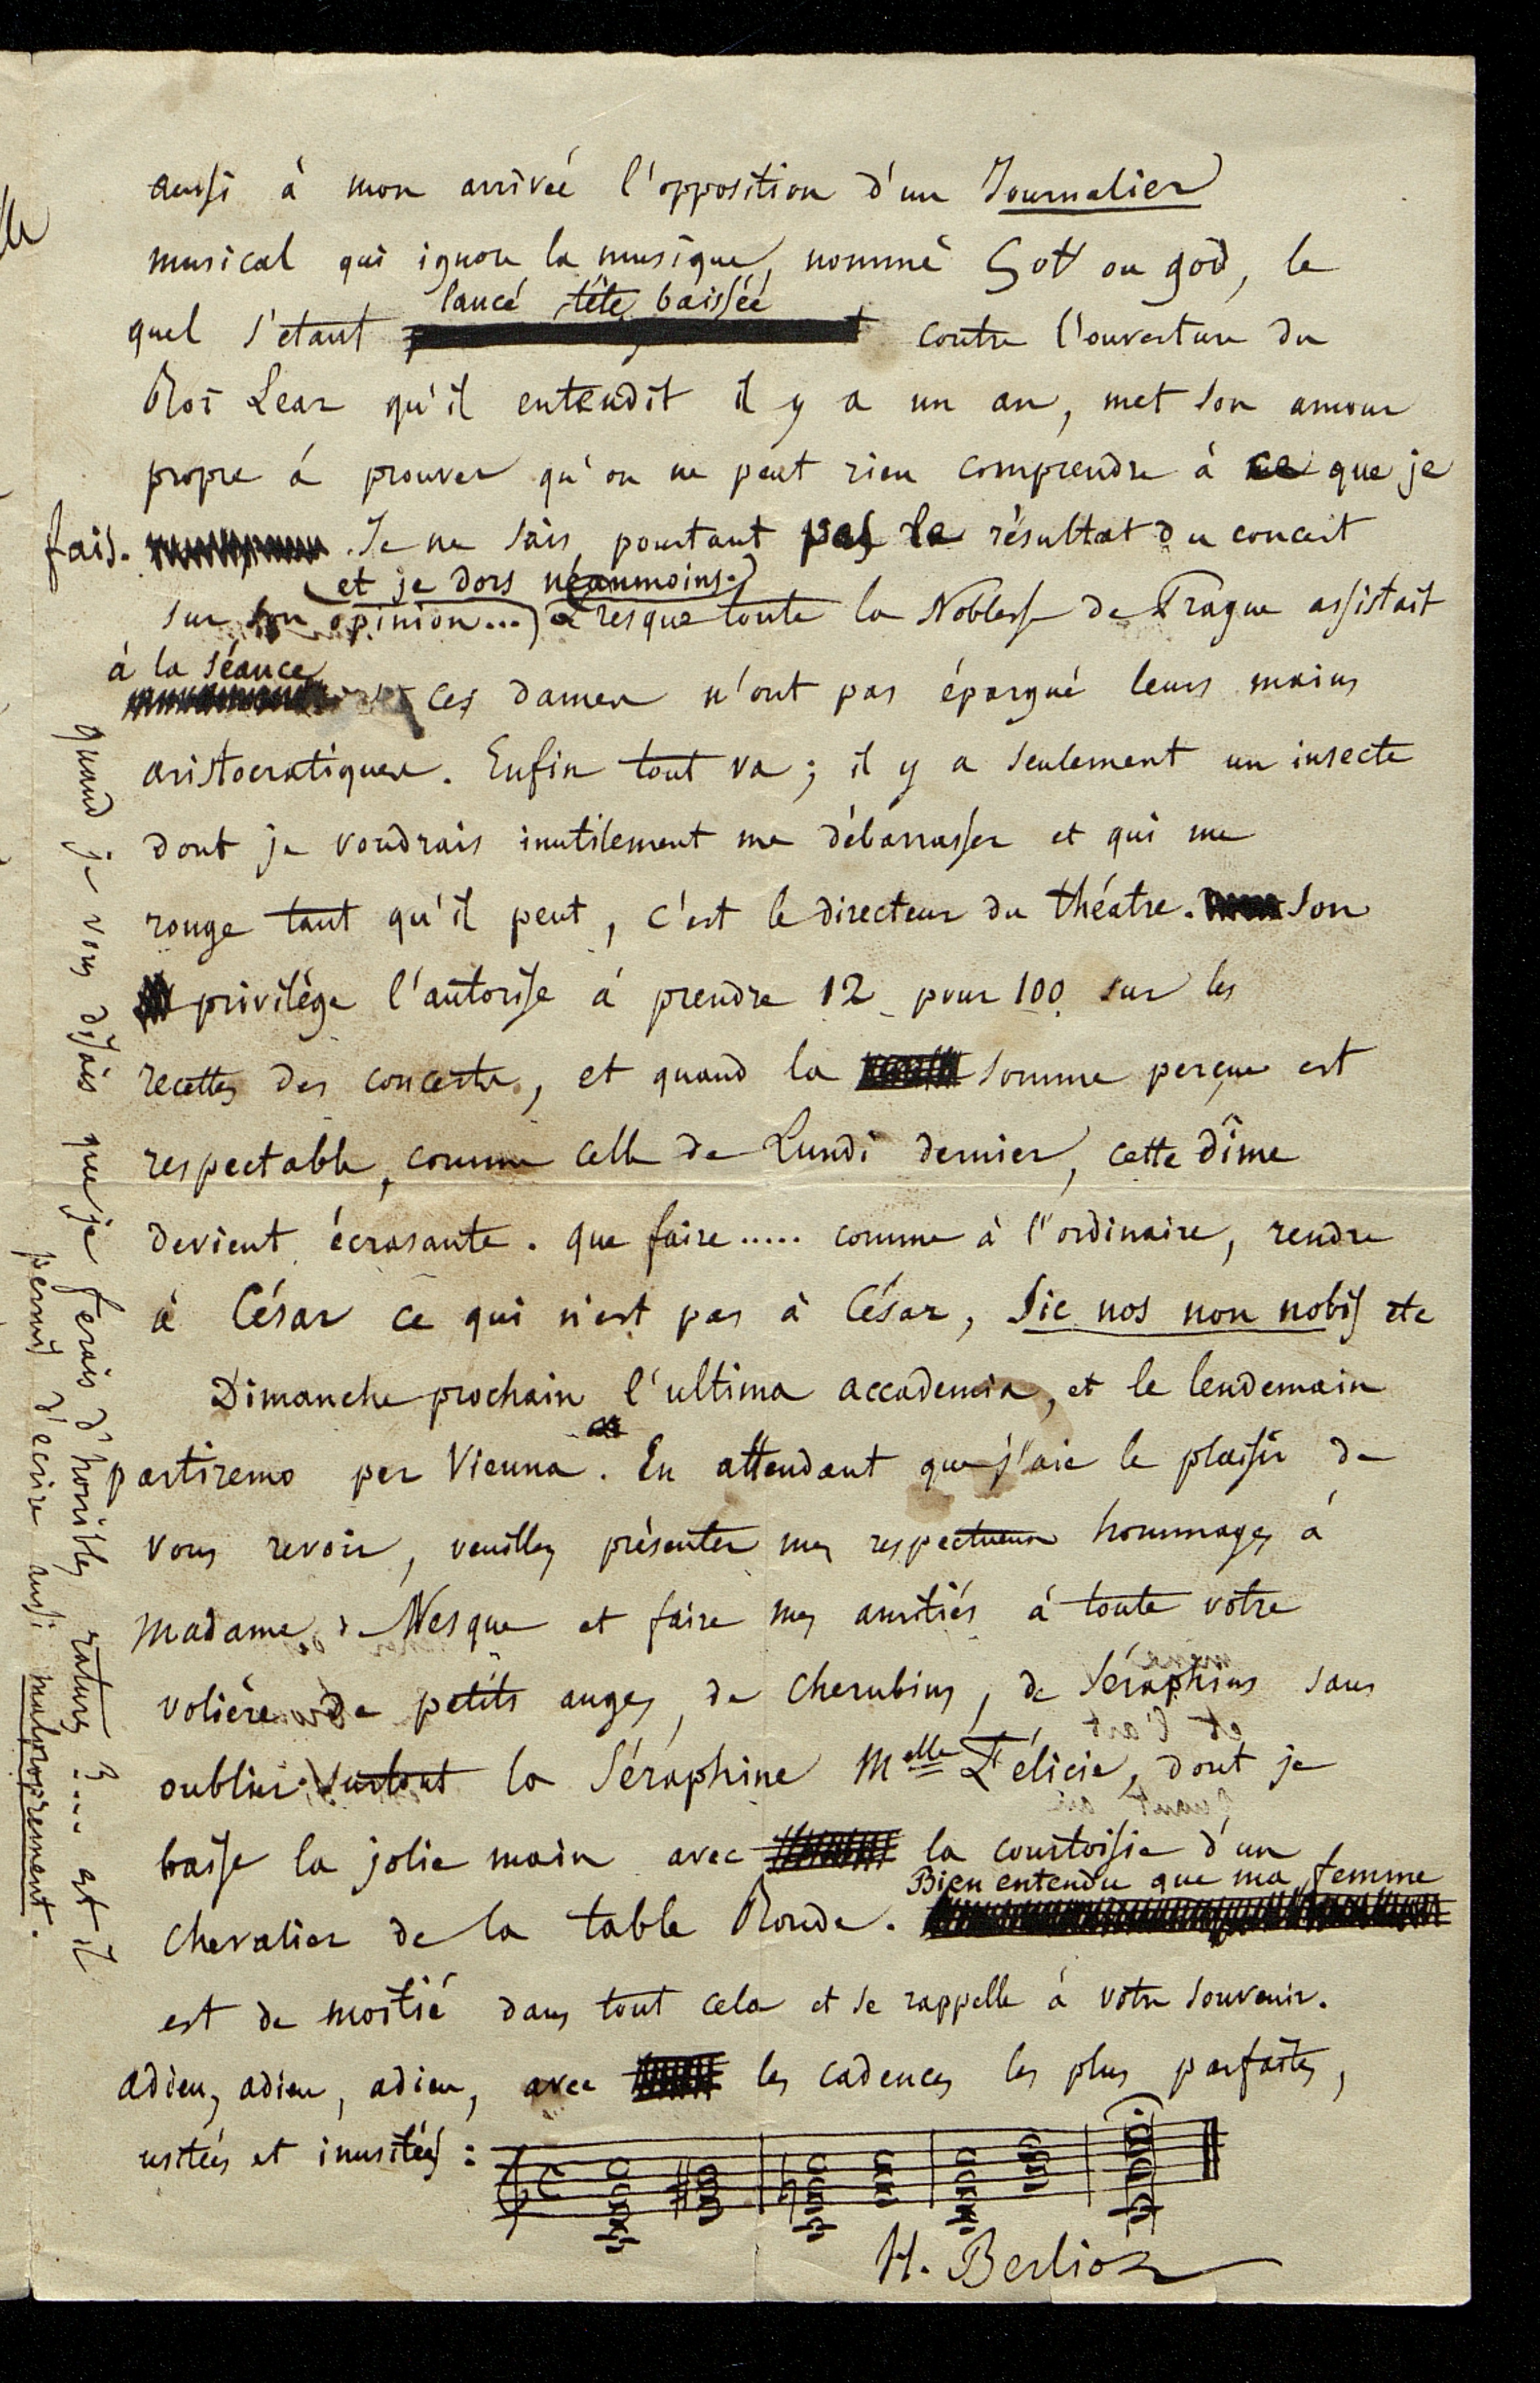 aussi à mon arrivée l'opposition d'un Journalier
musical qui ignore la musique, nommé Gott ou god, le
lancé tête baissée
quel s'étant contre l'ouverture du
Roi Lear qu'il entendit il y a un an, met son amour
propre á prouver qu'on ne peut rien comprendre à ce que je
fais. Je ne sais pourtant pas le résultat du concert
(et je dors néanmoins.)
sur son opinion...) Presque toute la Noblesse de Prague assistait
à la séance
et ces dames n'ont pas épargné leurs mains
aristocratiques. Enfin tout va; il y a seulement un insecte
dont je voudrais inutilement me débarrasser et qui me
ronge tant qu'il peut, c'est le directeur du théatre. Son
privilège l'autorise á prendre 12 pour 100 sur les
recettes des concerts, et quand la somme perçue est
respectable, comme celle de Lundi dernier, cette dîme
devient écrasante. que faire..... comme à l'ordinaire, rendre
à César ce qui n'est pas à César, Sic nos non nobis etc
Dimanche prochain l'ultima accademia, et le lendemain
partiremo per Vienna. En attendant que j'aie le plaisir de
vous revoir, veuillez présenter mes respectueux hommages á
Madame de Nesque et faire mes amitiés á toute votre
volière de petits anges, de cherubins, de Séraphins sans
oublier surtout la Séraphine Melle Félicie, dont je
baise la jolie main avec la courtoisie d'un
Bien entendu que ma femme
chevalier de la table Ronde.
est de moitié dans tout cela et se rappelle á votre souvenir.
adieu, adieu, adieu, avec les cadences les plus parfaites,
usitées et inusitées:
H. Berlioz
quand je vous disais que je ferais d'horribles ratures?... est il
permis d'écrire aussi malproprement.